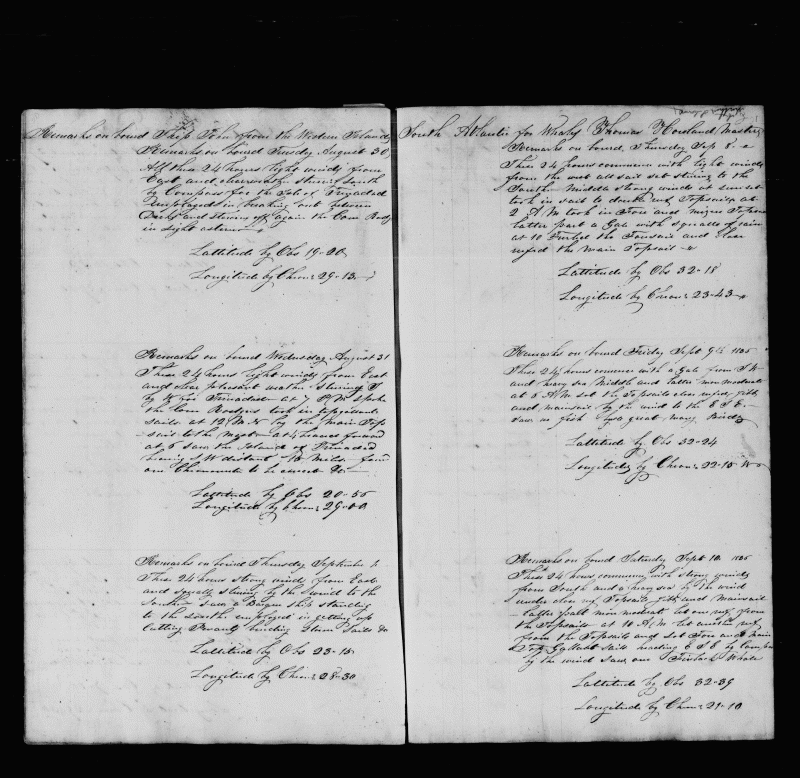 Remarks on board Ship John from the Western Islands
Remarks on board Tuesday August 30
All these 24 hours light winds from
East and clear weather stering South
by Compass for the Isle of Trinadad
employed in breaking out between
Decks and stowing off again the Com Rodgers
in sight astern
Lattitude by Obs 19-20
Longitude by Chron: 29-13
Remarks on board Wednesday August 31
These 24 hours light winds from East
and clear pleasant weather stering S
by W for Trinadad at 7 PM spoke
the Com Rodgers took in topgallant
sails at 12 M N by the main Top
sail to the Mast at 4 braced forward
at 6 saw the Island of Trinadad
bearing S W distant 15 miles found
our Chronometer to be correct &c
Lattitude by Obs 20-35
Longitude by Chron: 29-00
Remarks on board Thursday September 1
These 24 hours strong winds from East
and squally stering by the wind to the
South saw a Barque ship standing
to the South employed in getting up
Cutting bending Storm Sails &c
Lattitude by Obs 23-15
Longitude by Chron: 28-30
South Atlantic for Whales Thomas Howland Master
Remarks on board, Thursday Sep 8
These 24 hours commence with light winds
from the west all sail set stering to the
South Middle strong winds at sun set
took in sail to double reef Topsails at
2 A M took in Fore and mizen Topsail
latter part a Gale with squalls of rain
at 10 Furled the Foresail and close
reefed the Main Topsail
Lattitude by Obs 32-18
Longitude by Chron: 23-43
Remarks on board Friday Sept 9th 1836
These 24 hours commence with a Gale from S W
and heavy sea Middle and latter more moderate
at 8 A M set the Topsails close reefed, jibb
and mainsail by the wind to the E S E
saw no fish but a great many Birds
Lattitude by Obs 32-24
Longitude by Chron: 22-15 W
Remarks on board Saturday Sept 10 1836
These 24 hours commence with strong winds
from South and a heavy sea by the wind
under close reef Topsails, jibb and Mainsail
latter part more moderate let one reef from
the Topsails at 10 A M let another reef
from the Topsails and set Fore and Main
Top Gallant Sails heading E S E by Compass
by the wind saw one Finback Whale
Lattitude by Obs 32-39
Longitude by Chron: 21-10